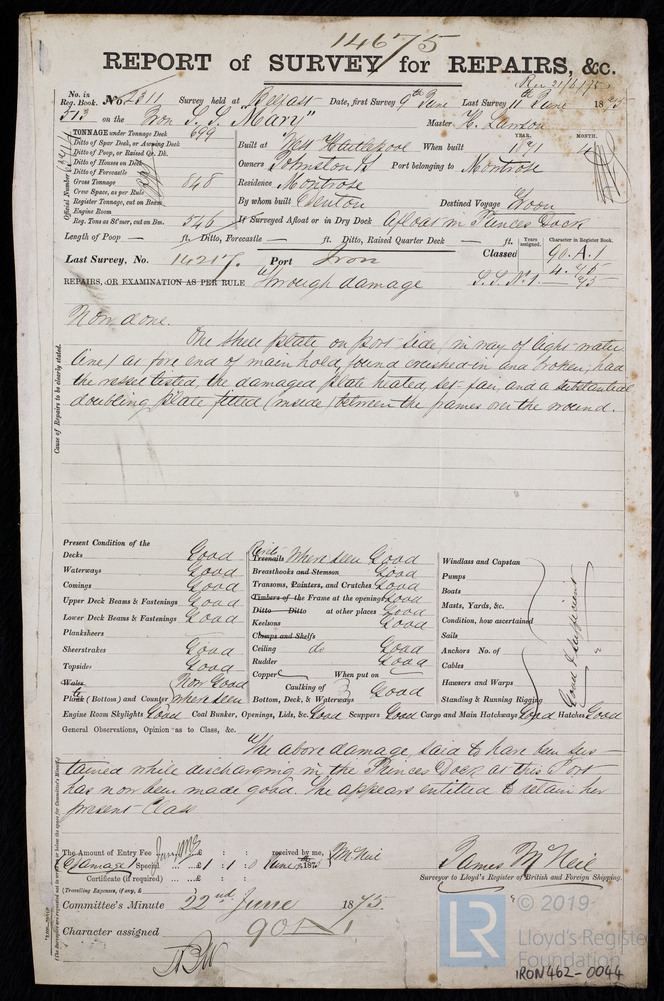 14675
REPORT of SURVEY for REPAIRS, &c.
Rec 21/6/75
No. in Reg. Book. No 2311 Survey held at Belfast Date, first Survey 9th June Last Survey 11th June 1875
513 on the Iron S.S. "Mary" Master H. Lawson
TONNAGE under Tonnage Deck 699
Ditto of Spar Deck, or Awning Deck
Ditto of Poop, or Raised Qr. Dk.
Ditto of Houses on Deck
Ditto of Forecastle
Gross Tonnage 848
Crew Space, as per Rule
Register Tonnage, cut on Beam
Engine Room
Reg. Tons as St'mer, cut on Bm. 546
Official Number
Built at West Hartlepool When built YEAR. 1871 MONTH. 4
Owners Johnston Port belonging to Montrose
Residence Montrose
By whom built Denton Destined Voyage Troon
If Surveyed Afloat or in Dry Dock Afloat in Princes Dock
Length of Poop — ft. Ditto, Forecastle — ft. Ditto, Raised Quarter Deck — ft. Years assigned. Character in Register Book.
Last Survey, No. 14217. Port Iron Classed 90.A.1
4.75
REPAIRS, OR EXAMINATION AS PER RULE Through damage S.S. No 1. — 75
Now done.
One shell plate on port side (in way of light-water
line) at fore end of main hold, found crushed in and broken; had
the vessel listed, the damaged plate heated, set-fair, and a substantial
doubling plate fitted (inside) between the frames over the wound.
Cause of Repairs to be clearly stated.
Present Condition of the
Decks Good
Waterways Good
Comings Good
Upper Deck Beams & Fastenings Good
Lower Deck Beams & Fastenings Good
Planksheers
Sheerstrakes Good
Topsides Good
Wales Now Good
Plank (Bottom) and Counter where seen
Treenails Where seen Good
Breasthooks and Stemson Good
Transoms, Pointers, and Crutches Good
Timbers of the Frame at the openings Good
Ditto Ditto at other places Good
Keelsons Good
Clamps and Shelfs
Ceiling do Good
Rudder Good
Copper When put on
Caulking of
Bottom, Deck, & Waterways Good
Windlass and Capstan
Pumps
Boats
Masts, Yards, &c.
Condition, how ascertained
Sails
Anchors No. of
Cables
Hawsers and Warps
Standing & Running Rigging
Good & sufficient
Engine Room Skylights Good Coal Bunker, Openings, Lids, &c. Good Scuppers Good Cargo and Main Hatchways Good Hatches Good
General Observations, Opinion as to Class, &c.
The above damage, said to have been sus-
tained while discharging in the Princes Dock at this Port
has now been made good. She appears entitled to retain her
present Class
The Amount of Entry Fee ... £ : : received by me,
(Damage) Special ... £1 : 1 : 0 June 1875 J McNeil
Certificate (if required) ...
(Travelling Expenses, if any, £
James McNeil
Surveyor to Lloyd's Register of British and Foreign Shipping.
Committee's Minute 22nd June 1875.
Character assigned 90 A 1
LR © 2019
Lloyd's Register
Foundation
IRON462-0044